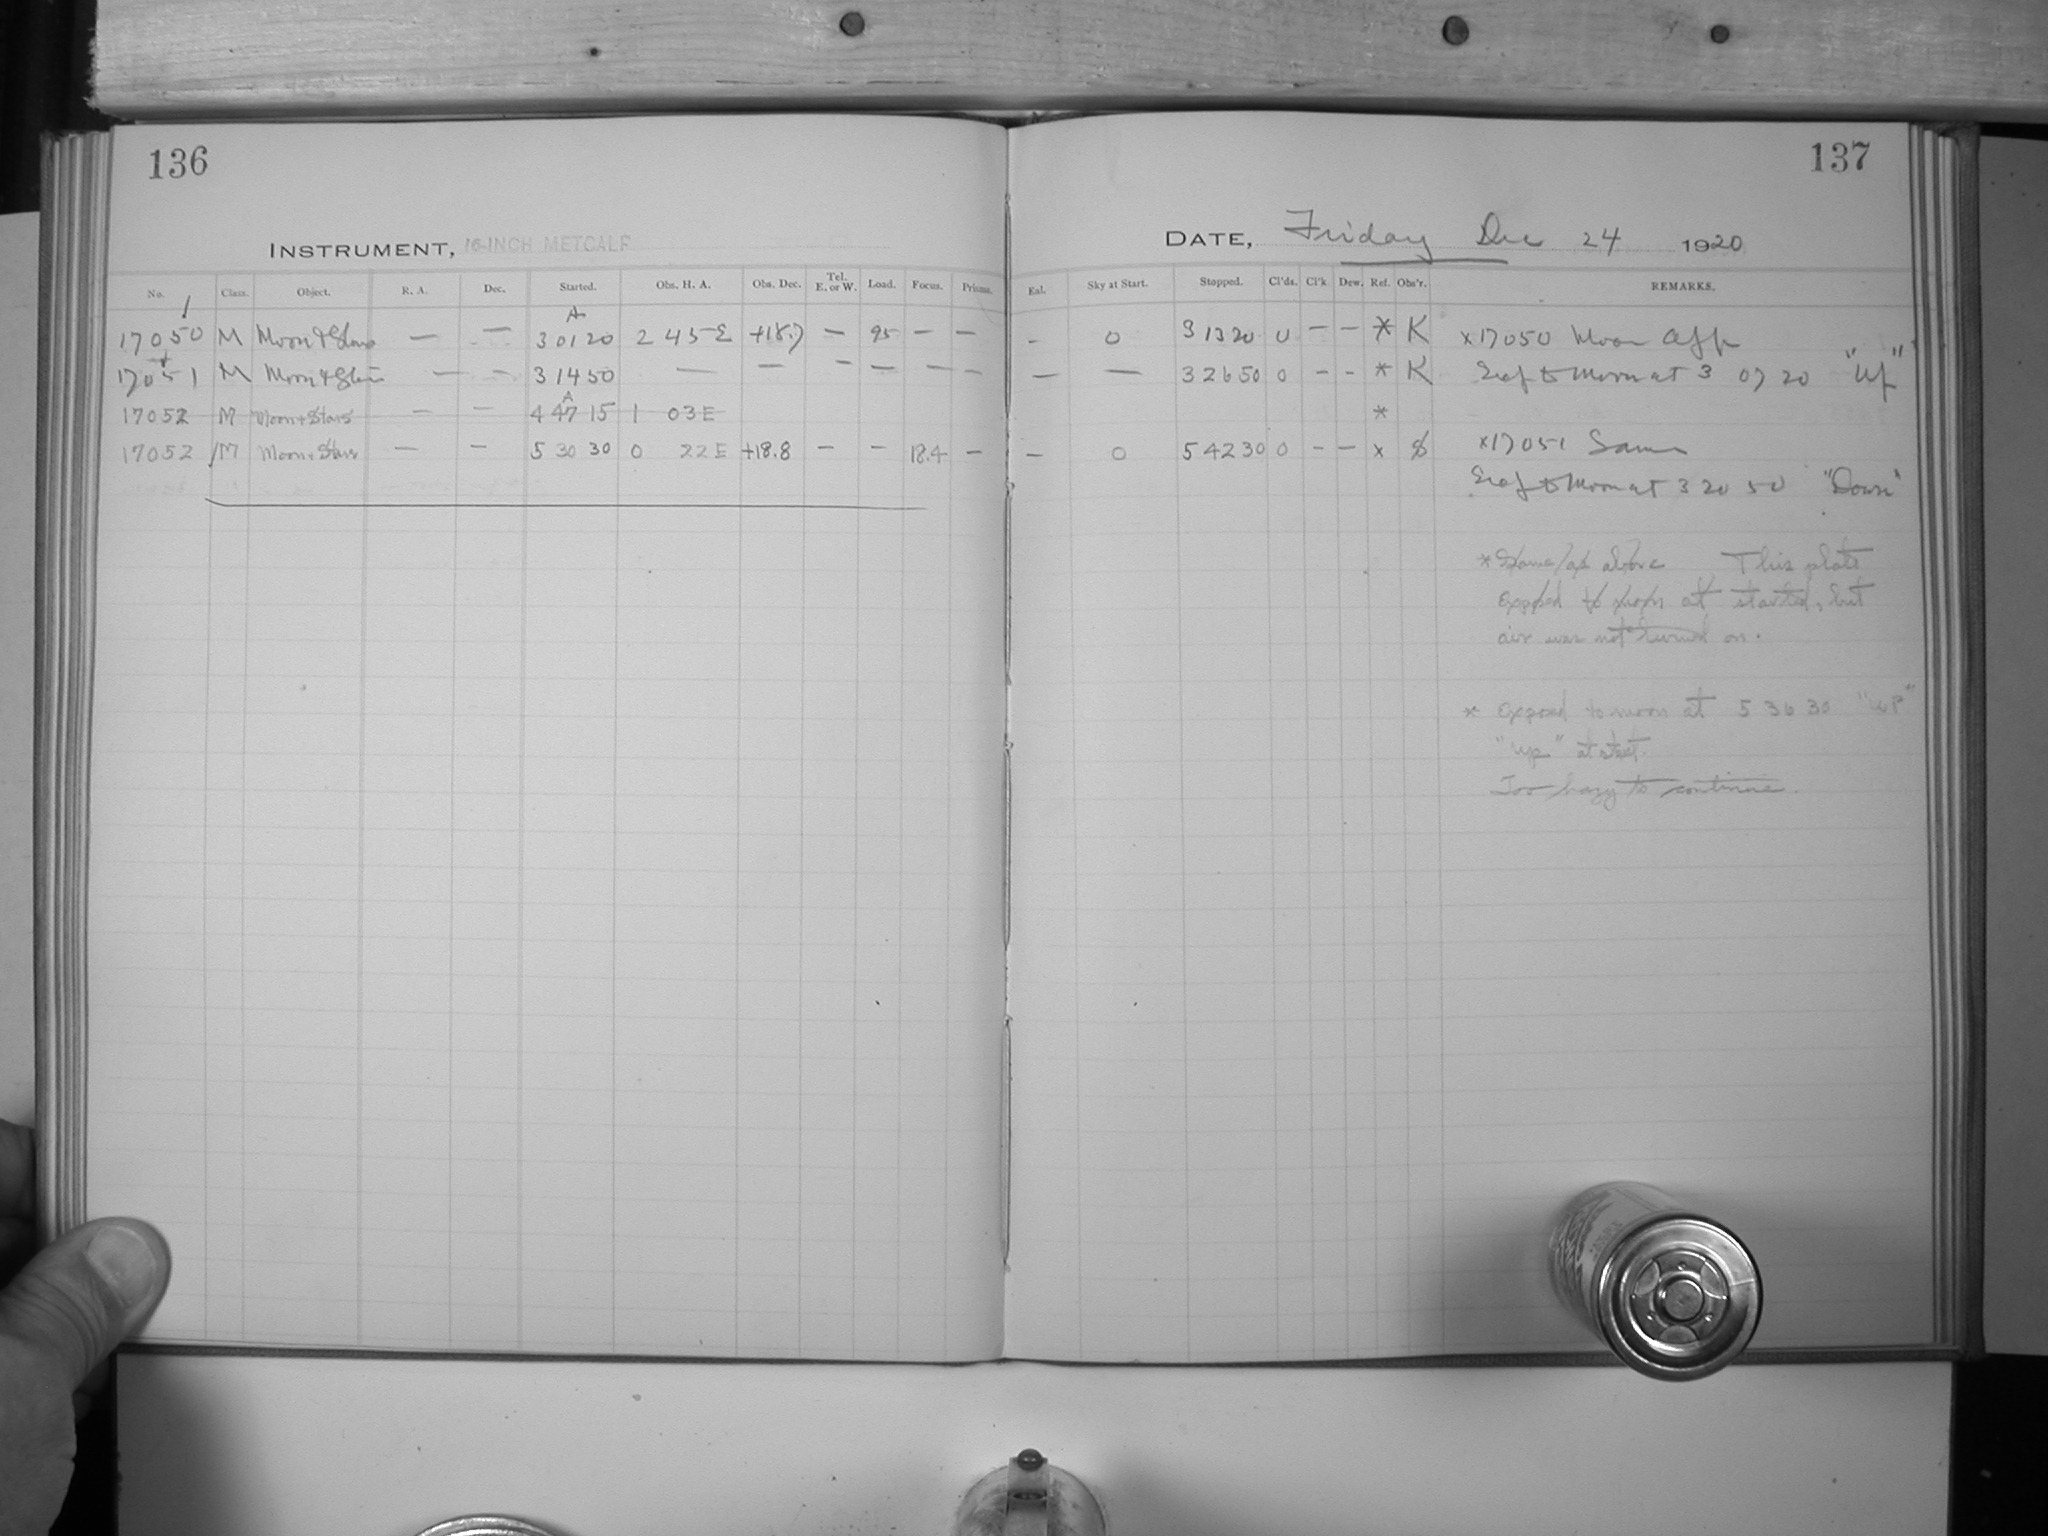 136
INSTRUMENT, 16-INCH METCALF
No. Class. Object. R. A. Dec. Started. Obs. H. A. Obs. Dec. Tel. E. or W. Load. Focus. Prisms.
17050 M Moon & Stars — — 3 01 20 2 45 E +18.7 — 95 — —
17051 M Moon & Stars — — 3 14 50 — — — — — —
17052 M Moon + Stars — — 4 47 15 1 03 E
17052 M Moon + Stars — — 5 30 30 0 22 E +18.8 — — 18.4 —
137
DATE, Friday Dec 24 1920
Sky at Start. Stopped. Cl'ds. Cl'k Dew. Ref. Obs'r. REMARKS.
- 0 3 13 20 0 — — * K x17050 Moon
— — 3 26 50 0 - - * K to Moon at 3 07 20 "Up"
*
- 0 5 42 30 0 - — x x17051 Same
to Moon at 3 20 50 "Down"
* Same as above This plate
exposed to moon at started, but
air was not turned on.
* exposed to moon at 5 36 30 "UP"
"up" at start.
Too hazy to continue.